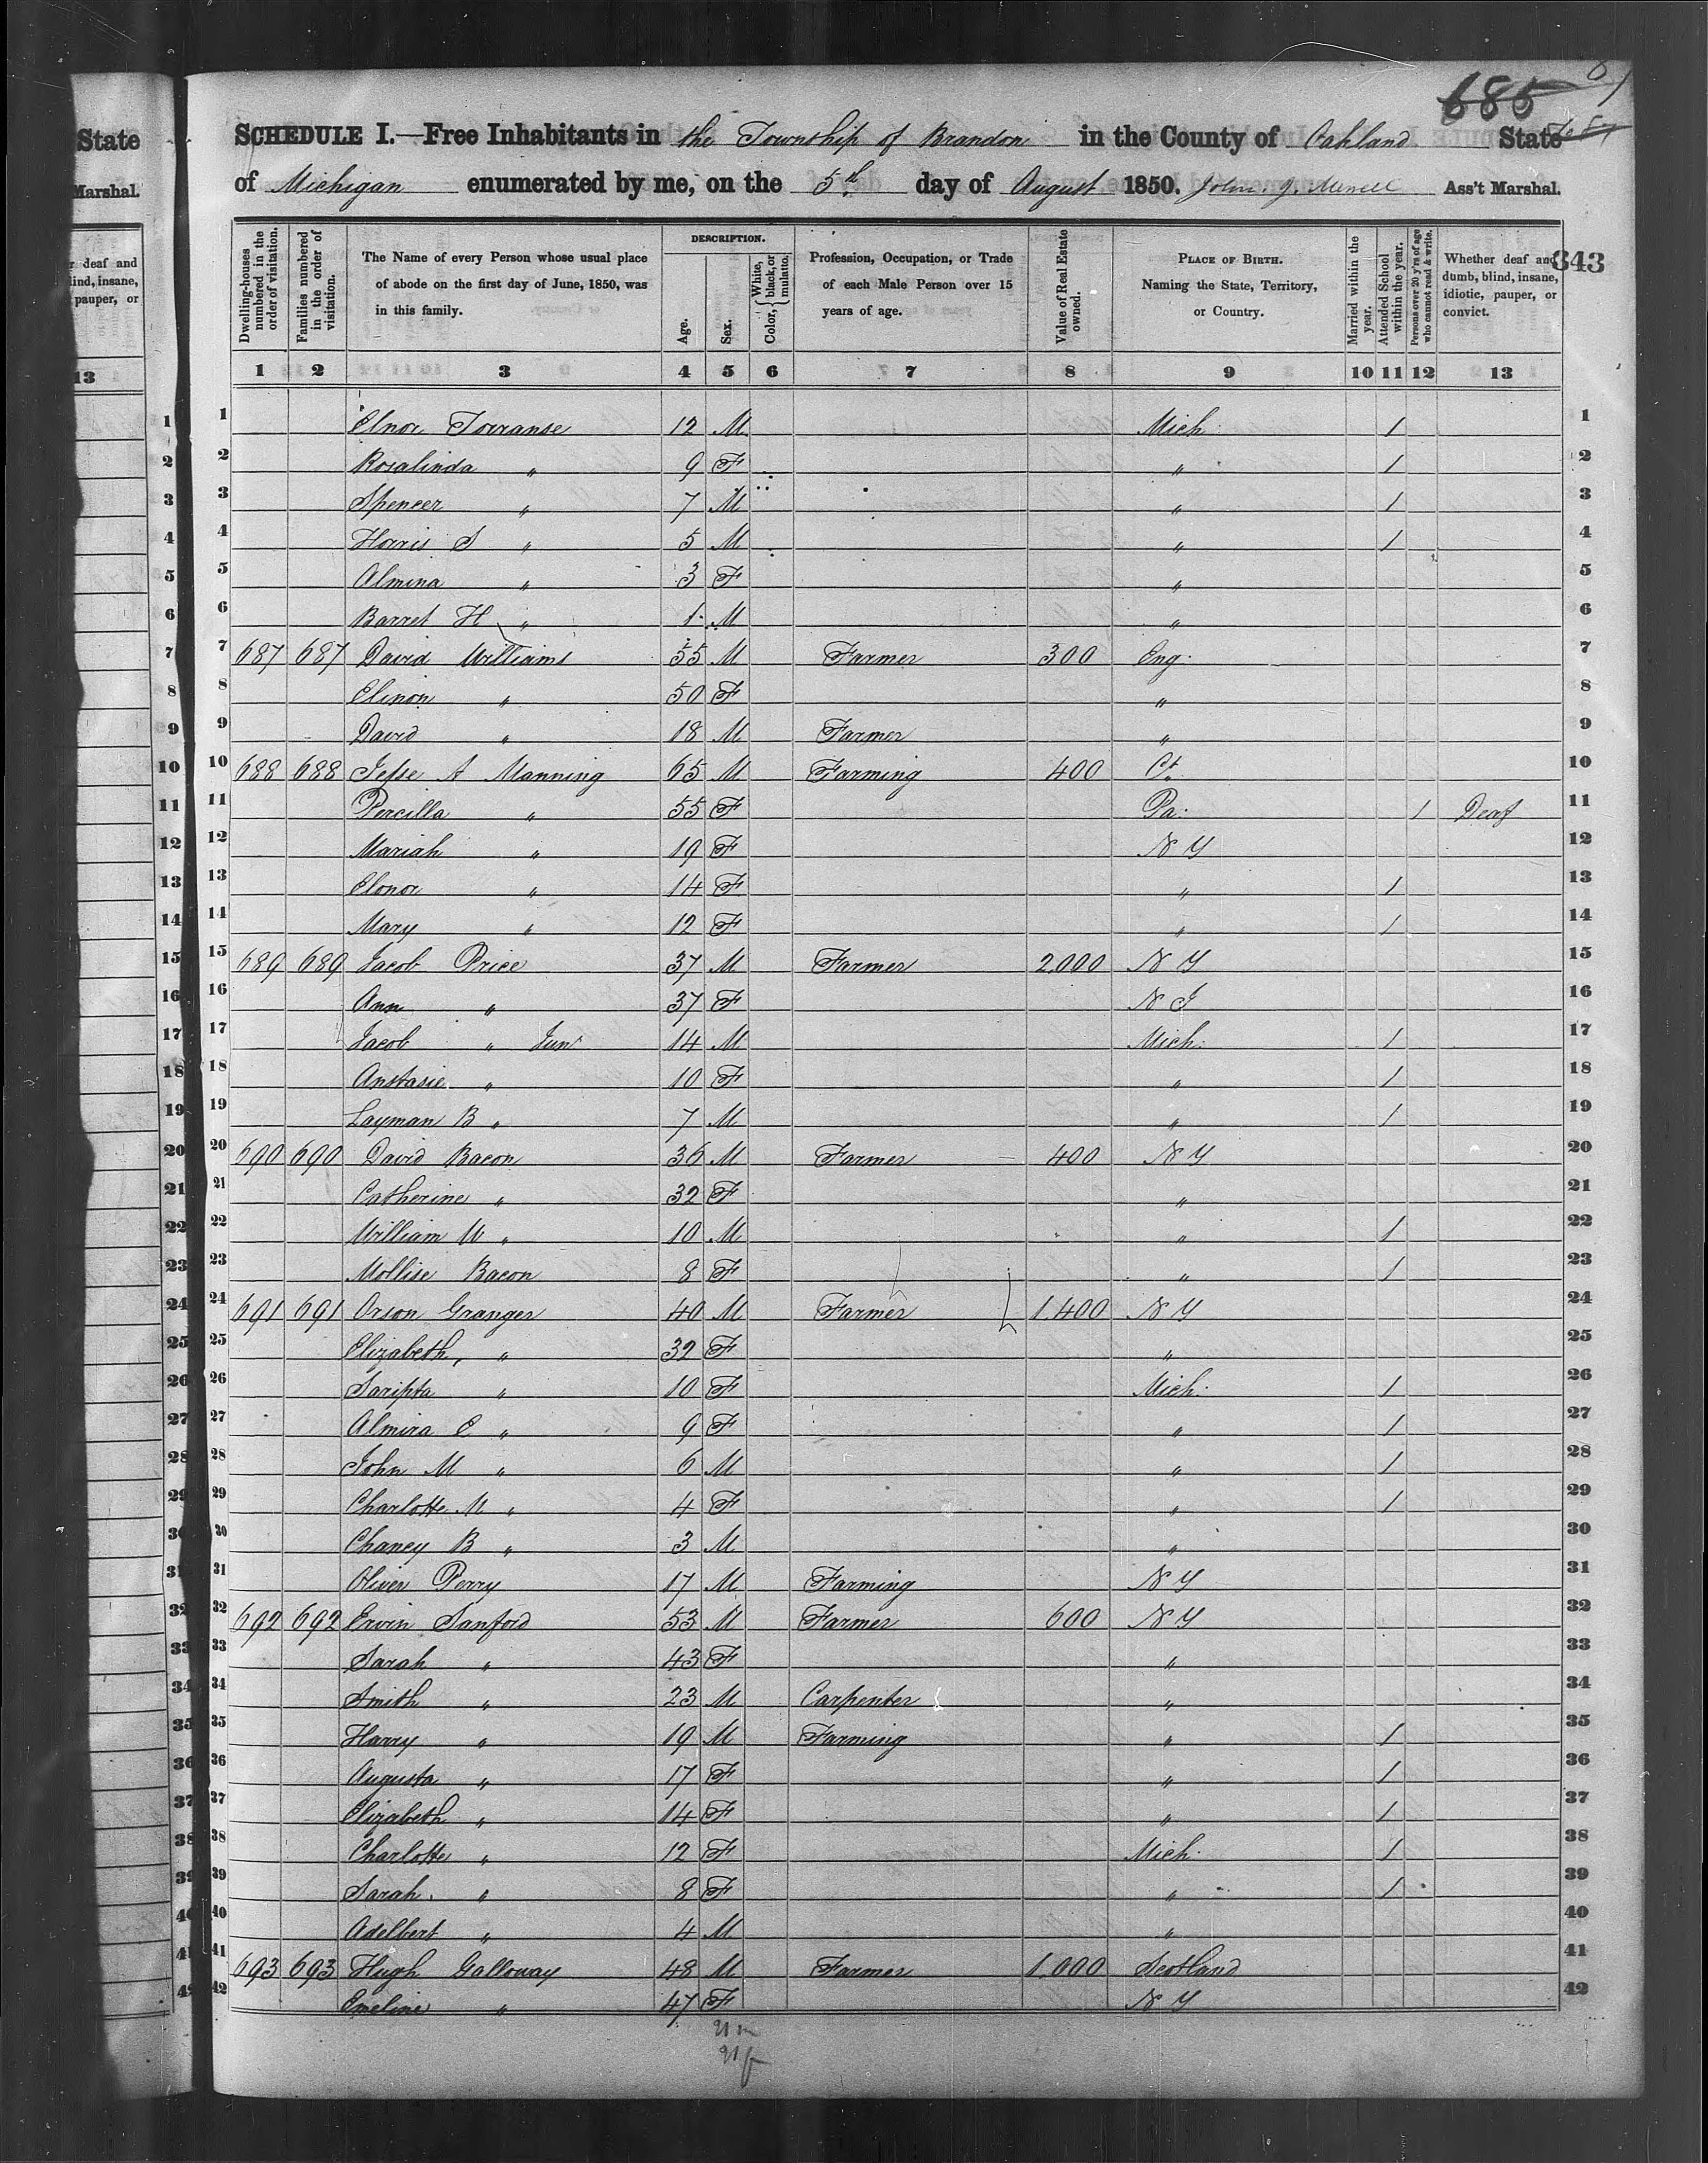 685
State
Marshal.
SCHEDULE I.—Free Inhabitants in the Township of Brandon in the County of Oakland State
of Michigan enumerated by me, on the 5th day of August 1850. John J. Ass't Marshal.
343
Dwelling-houses numbered in the order of visitation.
Families numbered in the order of visitation.
The Name of every Person whose usual place of abode on the first day of June, 1850, was in this family.
DESCRIPTION.
Age.
Sex.
Color, { White, black, or mulatto.
Profession, Occupation, or Trade of each Male Person over 15 years of age.
Value of Real Estate owned.
PLACE OF BIRTH. Naming the State, Territory, or Country.
Married within the year.
Attended School within the year.
Persons over 20 y'rs of age who cannot read & write.
Whether deaf and dumb, blind, insane, idiotic, pauper, or convict.
1 2 3 4 5 6 7 8 9 10 11 12 13
1 Elnor Torranse 12 M Mich 1 1
2 Rosalinda " 9 F " 1 2
3 Spencer " 7 M " 1 3
4 Harris S " 5 M " 1 4
5 Almina " 3 F " 5
6 Barret H " 1 M " 6
7 687 687 David Williams 55 M Farmer 300 Eng. 7
8 Elinor " 50 F " 8
9 David " 18 M Farmer " 9
10 688 688 Jesse A Manning 65 M Farming 400 Ct. 10
11 Percilla " 55 F Pa. 1 Deaf 11
12 Mariah " 19 F N Y 12
13 Elonor " 14 F " 1 13
14 Mary " 12 F " 1 14
15 689 689 Jacob Price 37 M Farmer 2,000 N Y 15
16 Ann " 37 F N J 16
17 Jacob " Jun 14 M Mich. 1 17
18 Anstasie " 10 F " 1 18
19 Layman B " 7 M " 1 19
20 690 690 David Bacon 36 M Farmer 400 N Y 20
21 Catherine " 32 F " 21
22 William W " 10 M " 1 22
23 Mollise Bacon 8 F " 1 23
24 691 691 Orson Granger 40 M Farmer 1,400 N Y 24
25 Elizabeth " 32 F " 25
26 Saripta " 10 F Mich. 1 26
27 Almira E " 9 F " 1 27
28 John M " 6 M " 1 28
29 Charlotte M " 4 F " 1 29
30 Chaney B " 3 M " 30
31 Oliver Perry 17 M Farming N Y 31
32 692 692 Ervin Sanford 53 M Farmer 600 N Y 32
33 Sarah " 43 F " 33
34 Smith " 23 M Carpenter " 34
35 Harry " 19 M Farming " 1 35
36 Augusta " 17 F " 1 36
37 Elizabeth " 14 F " 1 37
38 Charlotte " 12 F Mich. 1 38
39 Sarah " 8 F " 1 39
40 Adelbert " 4 M " 40
41 693 693 Hugh Galloway 48 M Farmer 1,000 Scotland 41
42 Emeline " 47 F N Y 42
21 m
21 f